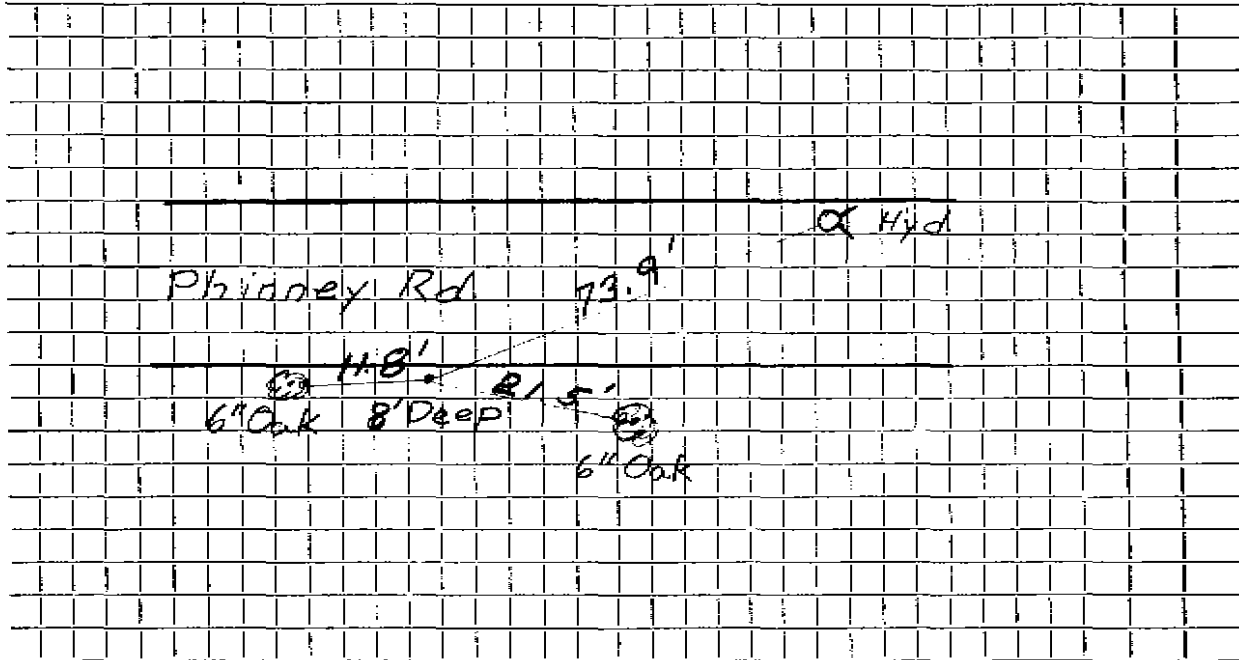 Hyd
Phinney Rd
73.9'
11.8'
21.5'
6" Oak
8' Deep
6" Oak